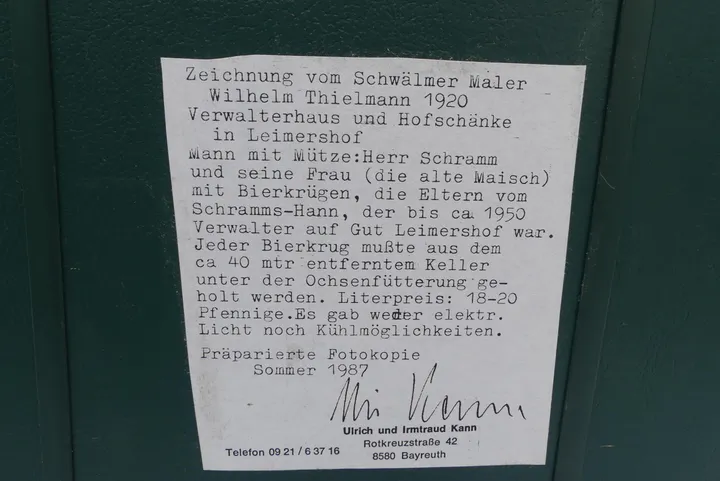 Zeichnung vom Schwälmer Maler
Wilhelm Thielmann 1920
Verwalterhaus und Hofschänke
in Leimershof
Mann mit Mütze:Herr Schramm
und seine Frau (die alte Maisch)
mit Bierkrügen, die Eltern vom
Schramms-Hann, der bis ca 1950
Verwalter auf Gut Leimershof war.
Jeder Bierkrug mußte aus dem
ca 40 mtr entferntem Keller
unter der Ochsenfütterung ge-
holt werden. Literpreis: 18-20
Pfennige.Es gab weder elektr.
Licht noch Kühlmöglichkeiten.
Präparierte Fotokopie
Sommer 1987
Ulrich und Irmtraud Kann
Rotkreuzstraße 42
Telefon 09 21 / 6 37 16 8580 Bayreuth